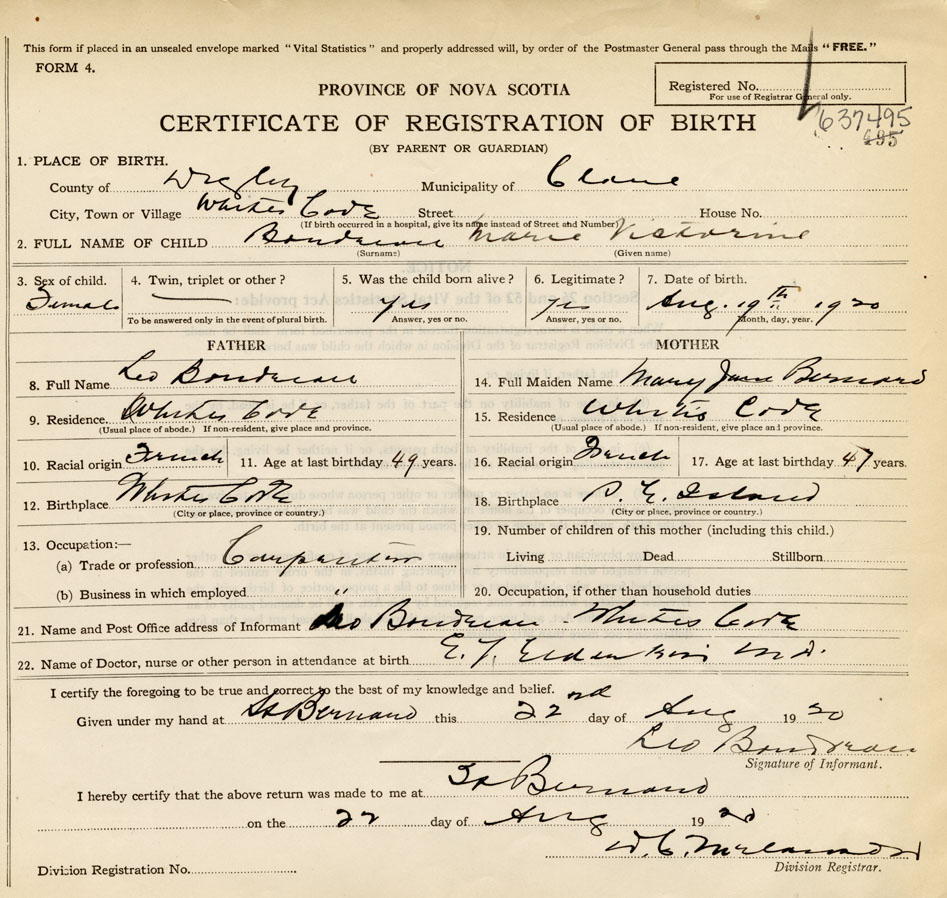 This form if placed in an unsealed envelope marked "Vital Statistics" and properly addressed will, by order of the Postmaster General pass through the Mails "FREE."
FORM 4.
PROVINCE OF NOVA SCOTIA
Registered No.
For use of Registrar General only.
637495
495
CERTIFICATE OF REGISTRATION OF BIRTH
(BY PARENT OR GUARDIAN)
1. PLACE OF BIRTH.
County of Digby Municipality of Clare
City, Town or Village Whites Cove Street House No.
(If birth occurred in a hospital, give its name instead of Street and Number)
2. FULL NAME OF CHILD Boudreau Marie Victorine
(Surname) (Given name)
NOTICE.
3. Sex of child. 4. Twin, triplet or other? 5. Was the child born alive? 6. Legitimate? 7. Date of birth.
Female yes yes Aug. 19th 1920
To be answered only in the event of plural birth. Answer, yes or no. Answer, yes or no. Month, day, year.
FATHER MOTHER
8. Full Name Leo Boudreau 14. Full Maiden Name Mary Jane Bernard
9. Residence. Whites Cove 15. Residence Whites Cove
(Usual place of abode.) If non-resident, give place and province. (Usual place of abode.) If non-resident, give place and province.
10. Racial origin French 11. Age at last birthday 49 years. 16. Racial origin French 17. Age at last birthday 47 years.
12. Birthplace Whites Cove 18. Birthplace P. E. Island
(City or place, province or country.) (City or place, province or country.)
19. Number of children of this mother (including this child.)
13. Occupation:—
(a) Trade or profession Carpenter Living Dead Stillborn
(b) Business in which employed " 20. Occupation, if other than household duties
21. Name and Post Office address of Informant Leo Boudreau - Whites Cove
22. Name of Doctor, nurse or other person in attendance at birth E. M.D.
I certify the foregoing to be true and correct to the best of my knowledge and belief.
Given under my hand at St Bernard this 22nd day of Aug 1920
Leo Boudreau
Signature of Informant.
I hereby certify that the above return was made to me at St Bernard
on the 22 day of Aug 1920
Division Registration No.
Division Registrar.